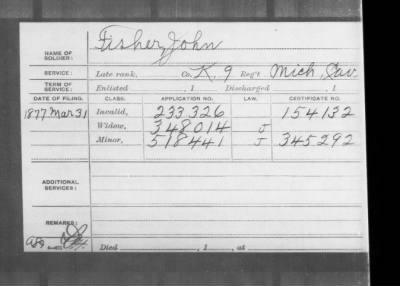 NAME OF SOLDIER: Fisher, John
SERVICE: Late rank, Co. K, 9 Reg't Mich. Cav.
TERM OF SERVICE: Enlisted , 1 Discharged , 1
DATE OF FILING. CLASS. APPLICATION NO. LAW. CERTIFICATE NO.
1877 Mar 31 Invalid, 233.326 154132
Widow, 348014 J
Minor, 518441 J 345292
ADDITIONAL SERVICES:
REMARKS:
Died , 1 , at